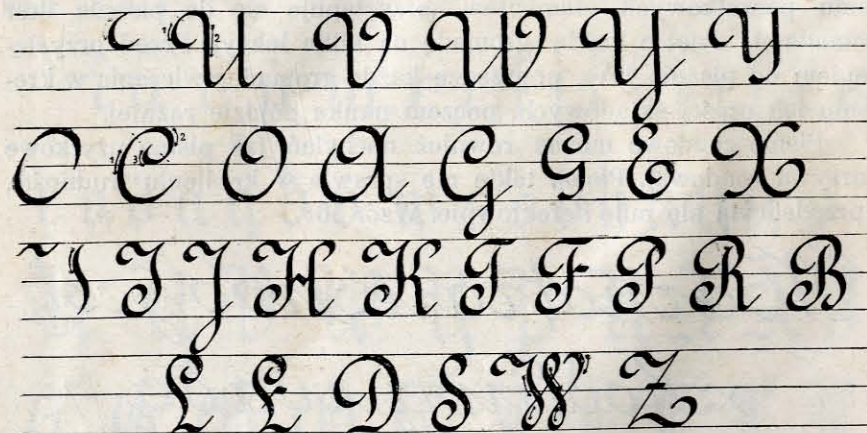 U V W Y Y
O C O A G G E X
I J H K T F P R B
L E D S W Z